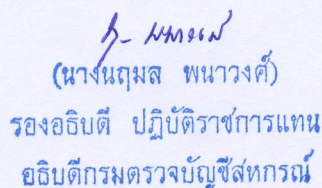 (นางนฤมล พนาวงศ์)
รองอธิบดี ปฏิบัติราชการแทน
อธิบดีกรมตรวจบัญชีสหกรณ์